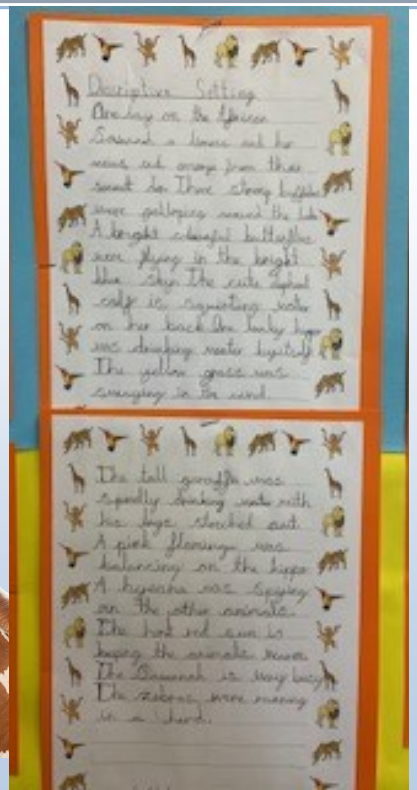 Descriptive Setting
One day on the African
Savannah a lioness and her
were out away from their
Three strong buffalos
were galloping around the lake
A bright colourful butterflies
were flying in the bright
blue sky. The cute elephant
calf is squirting water
on her back. One lonely hippo
was drinking water by itself
The yellow grass was
swinging in the wind.
The tall giraffe was
drinking water with
his legs out
A pink flamingo was
balancing on the hippo
A hyeana was spying
on the other animals.
The hot red sun is
keping the animals warm
The Savanah is very busy
The zebras were running
in a herd.